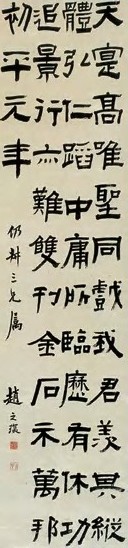 天寔高唯聖同戲我君羨其縱
體弘仁蹈中庸所臨歷有休功
追景行亦難雙刊金石示萬邦
初平元年
仍耕三兄属
趙之琛